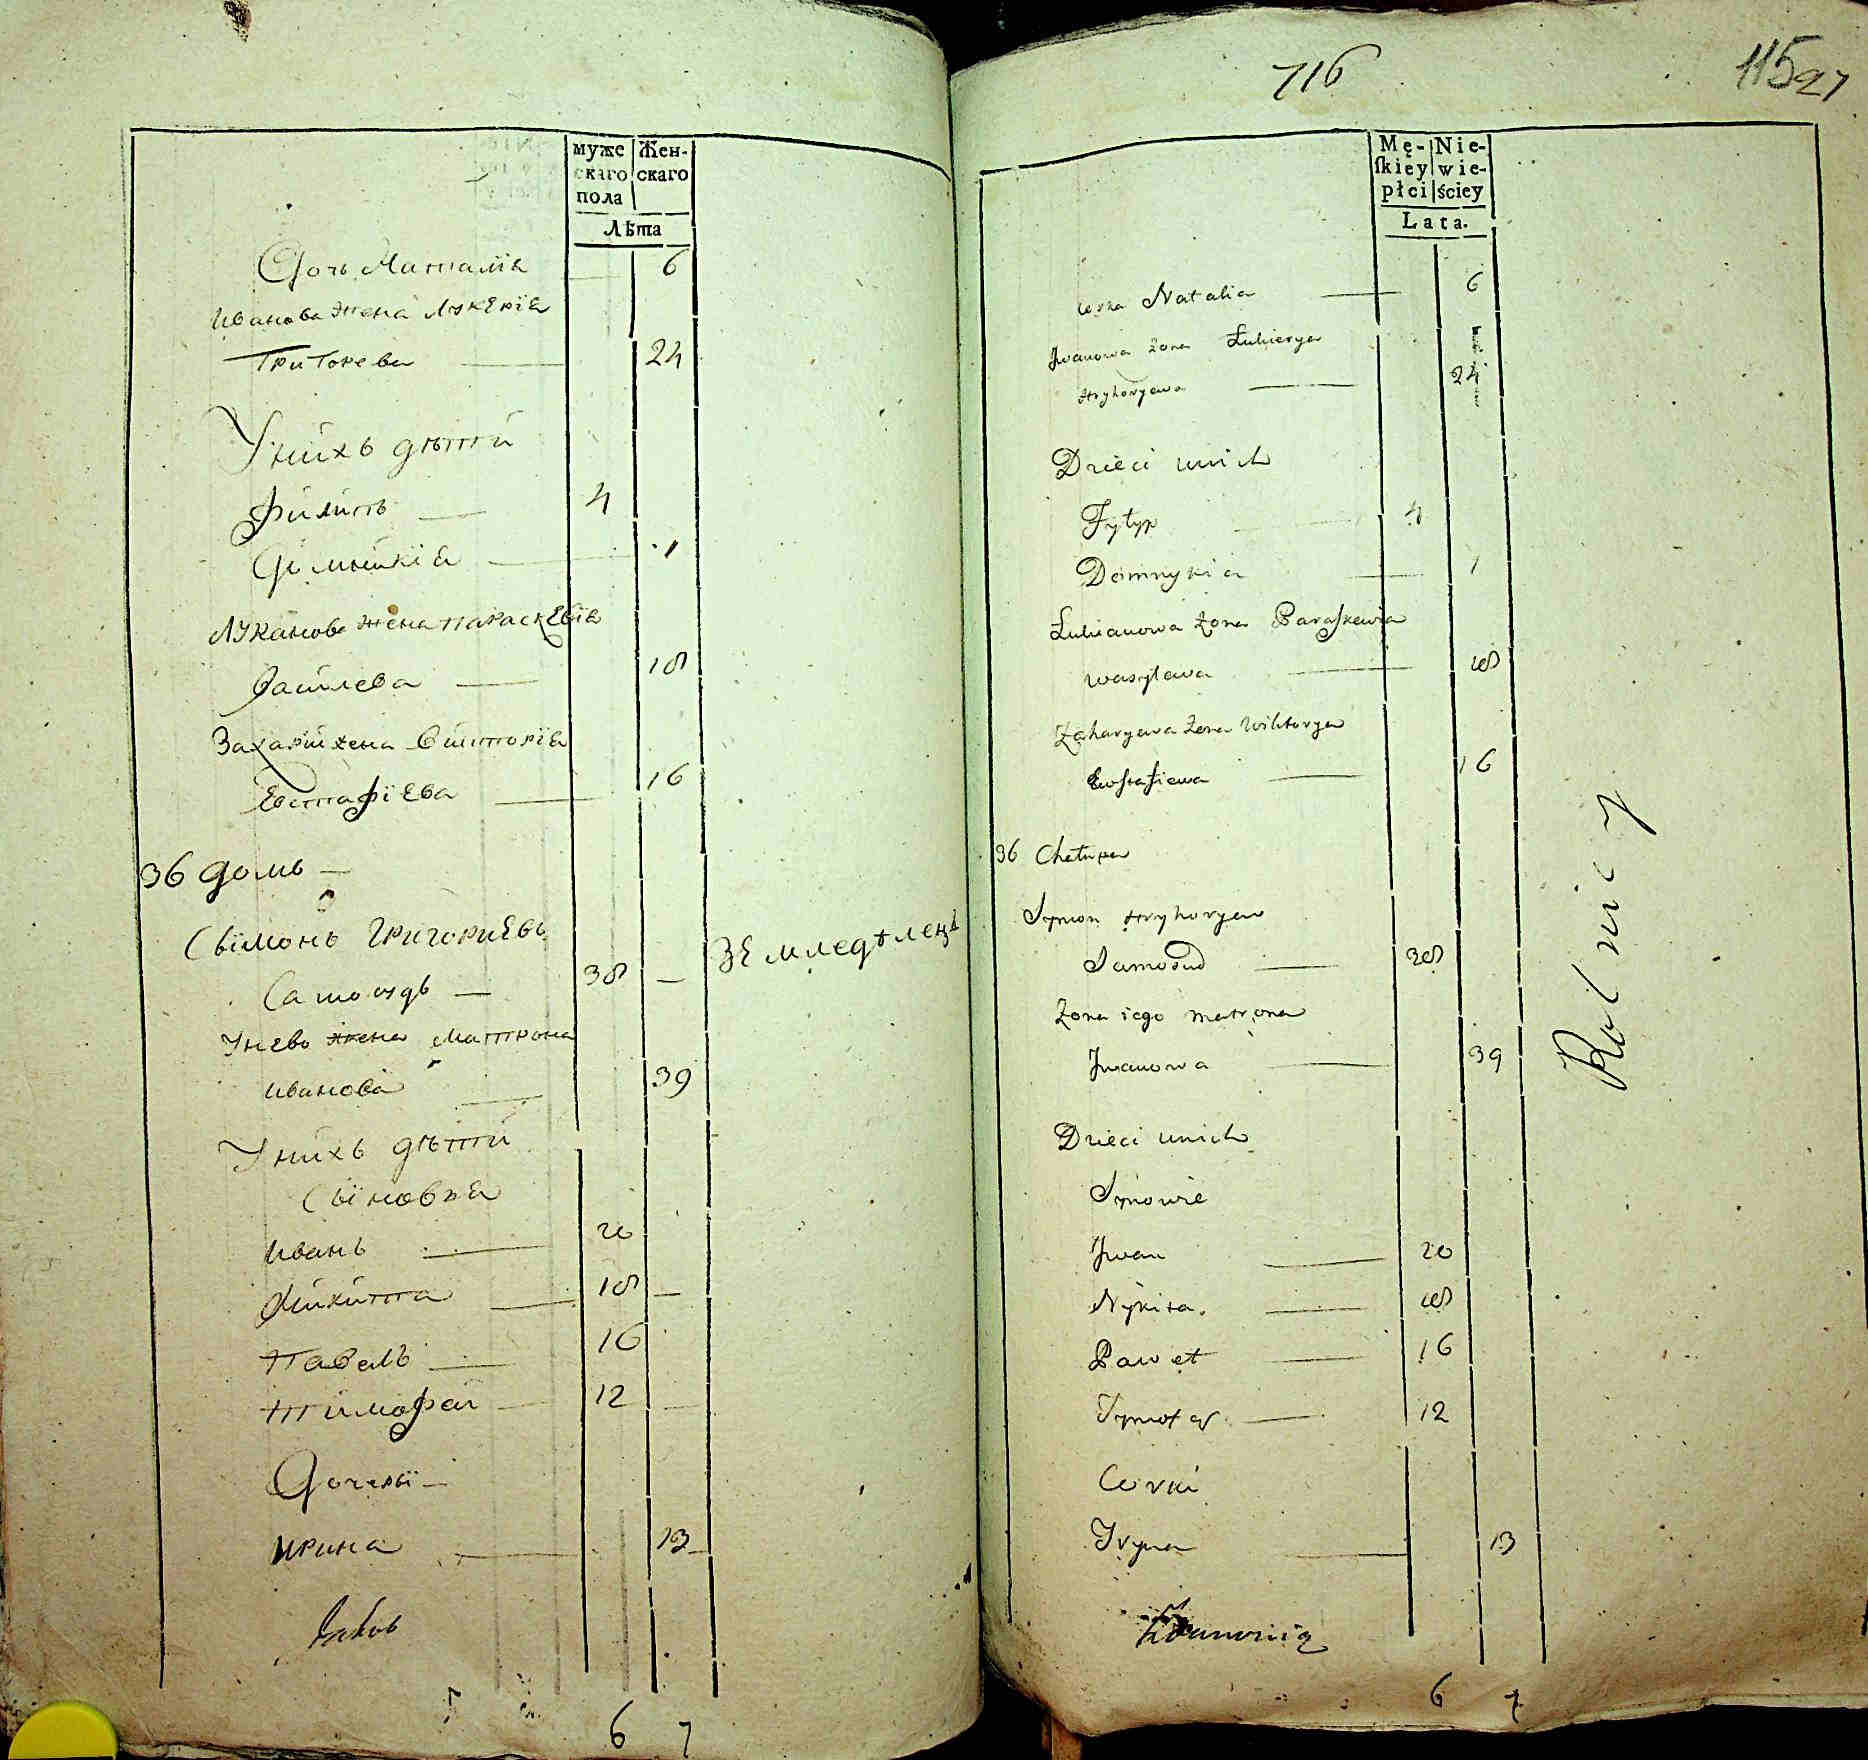 муже
скаго
пола
Жен-
скаго
Лѣта
Дочь Наталiя 6
Иванова жена Лукерiя
Григорева 24
У нихъ дѣти
Филипъ 4
Домникiя 1
Луканова жена Параскевiя
Василева 18
Захари жена Викторiя
Евстафiева 16
36 домъ
Сымонъ Григориевъ
Самосудъ 38 Земледѣлецъ
У нево жена Матрона
Иванова 39
У нихъ дѣти
Сыновья
Иванъ 20
Никита 18
Павелъ 16
Тимофей 12
Дочеры
Ирина 13
Jakob
6 7
716
115 27
Mę-
ſkiey
płci
Nie-
wie-
ściey
Lata.
corka Natalia 6
Jwanowa żona Łukierya
Hryhoryewa 24
Dzieci unich
Fyłyp 4
Domnykia 1
Łukianowa żona Paraſkewia
wasylewa 18
Zaharyewa żona Wiktorya
Ewſtafiewa 16
36 Chałupa
Symon Hryhoryew
Samosud 38
Żona iego matrona
Jwanowa 39
Rolnicy
Dzieci unich
Synowie
Jwan 20
Nykita 18
Paweł 16
Tymofey 12
Corki
Iryna 13
6 7